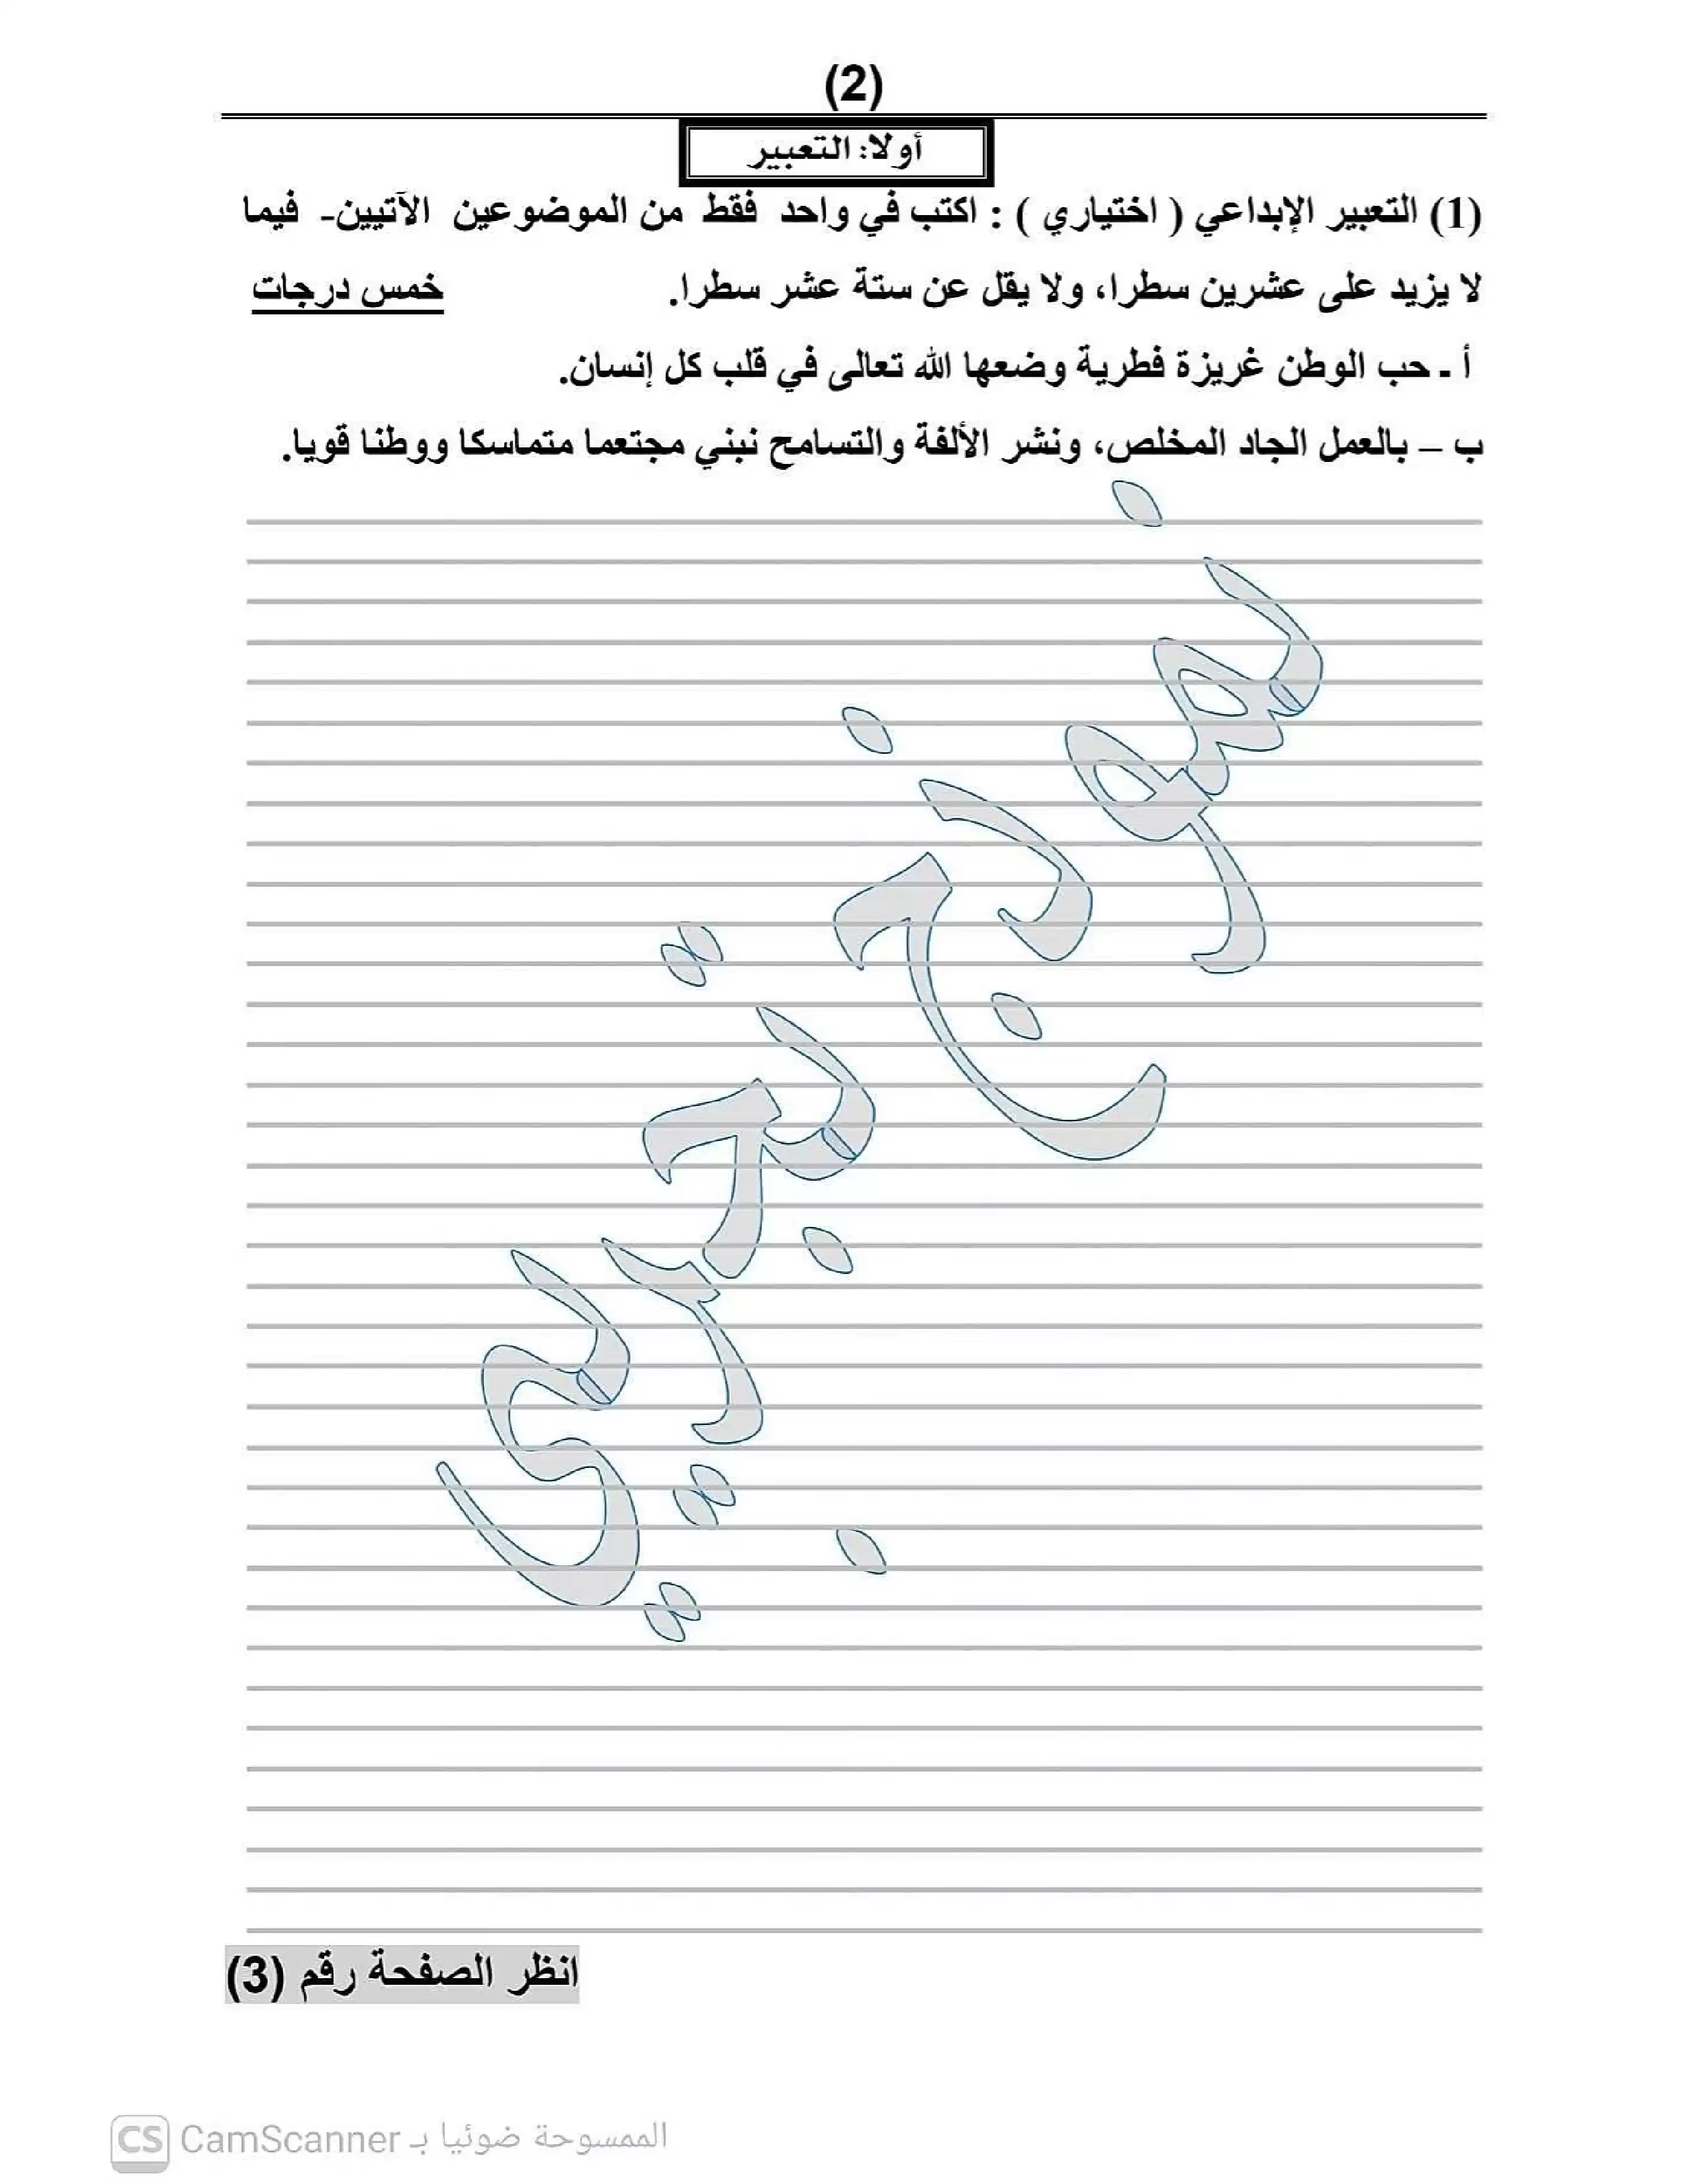 (2)
أولا: التعبير
(1) التعبير الإبداعي ( اختياري ) : اكتب في واحد فقط من الموضوعين الآتيين- فيما
لا يزيد على عشرين سطرا، ولا يقل عن ستة عشر سطرا. خمس درجات
أ ـ حب الوطن غريزة فطرية وضعها الله تعالى في قلب كل إنسان.
ب – بالعمل الجاد المخلص، ونشر الألفة والتسامح نبني مجتعما متماسكا ووطنا قويا.
نموذج تجريبي
انظر الصفحة رقم (3)
CS CamScanner الممسوحة ضوئيا بـ